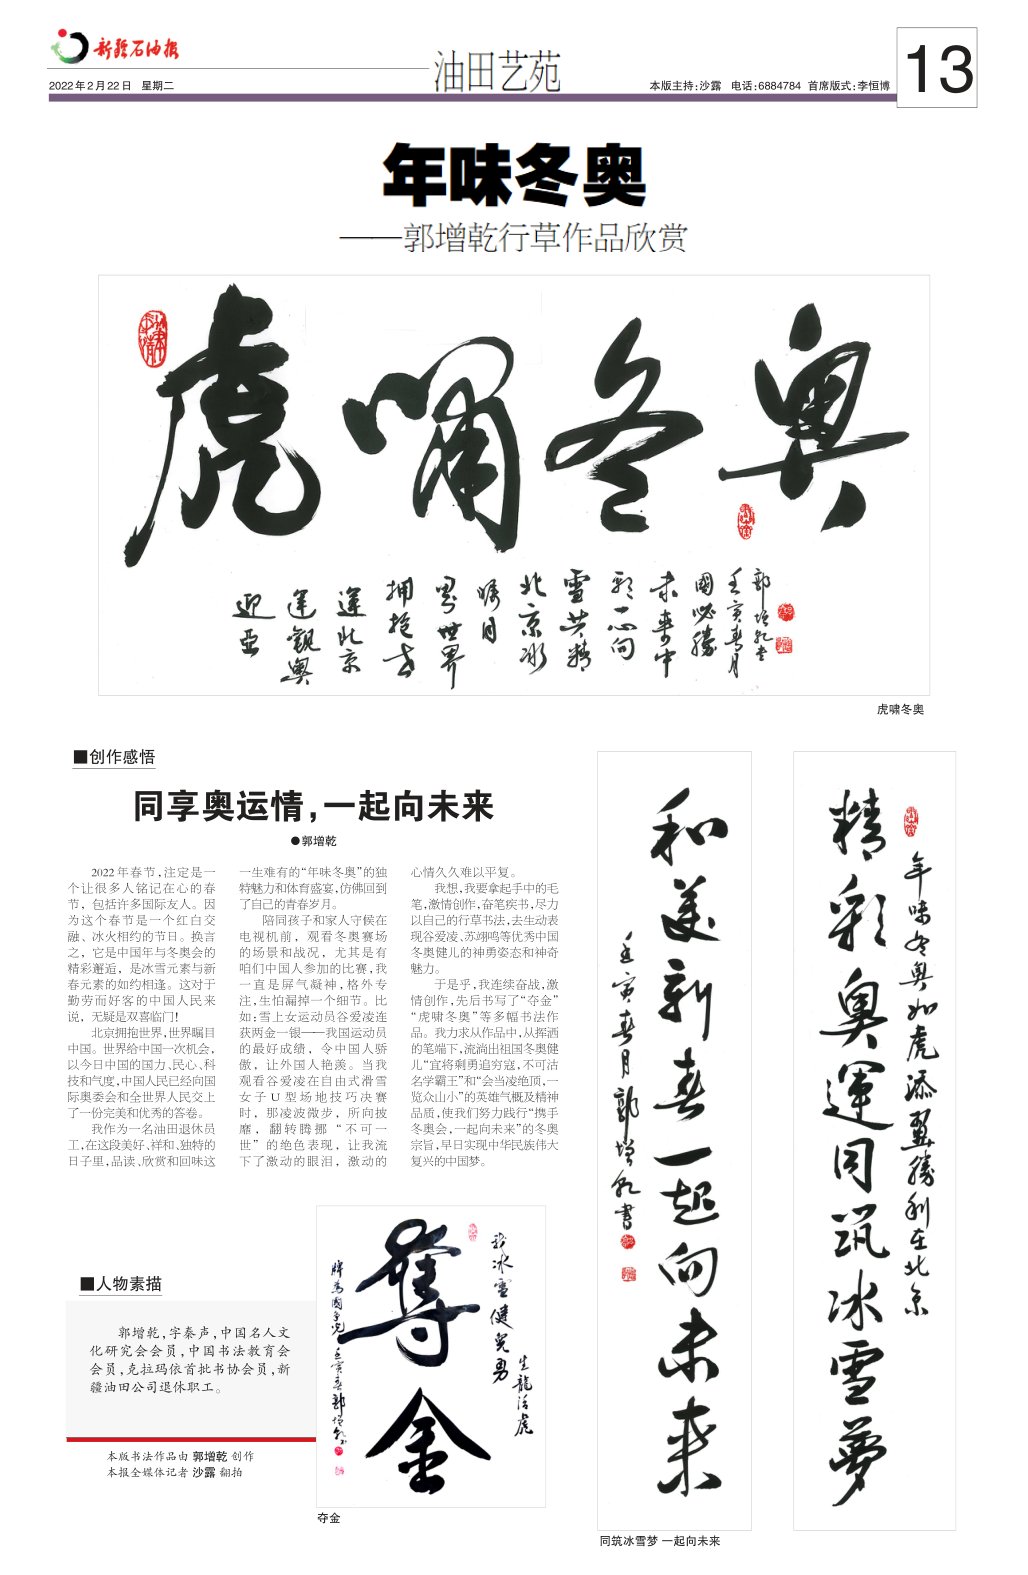 新疆石油报
2022年2月22日 星期二
油田艺苑
本版主持:沙露 电话:6884784 首席版式:李恒博
13
年味冬奥
——郭增乾行草作品欣赏
虎啸冬奥
郭增乾书
壬寅春月
國必勝
未来中
彩一心向
雪共精
北京冰
瞩目
界世界
拥抱世
運北京
運觀奥
迎亞
虎啸冬奥
■创作感悟
同享奥运情,一起向未来
●郭增乾
2022年春节,注定是一
个让很多人铭记在心的春
节，包括许多国际友人。因
为这个春节是一个红白交
融、冰火相约的节日。换言
之，它是中国年与冬奥会的
精彩邂逅，是冰雪元素与新
春元素的如约相逢。这对于
勤劳而好客的中国人民来
说，无疑是双喜临门！
北京拥抱世界,世界瞩目
中国。世界给中国一次机会,
以今日中国的国力、民心、科
技和气度,中国人民已经向国
际奥委会和全世界人民交上
了一份完美和优秀的答卷。
我作为一名油田退休员
工,在这段美好、祥和、独特的
日子里,品读、欣赏和回味这
一生难有的“年味冬奥”的独
特魅力和体育盛宴,仿佛回到
了自己的青春岁月。
陪同孩子和家人守候在
电视机前，观看冬奥赛场
的场景和战况，尤其是有
咱们中国人参加的比赛,我
一直是屏气凝神，格外专
注,生怕漏掉一个细节。比
如:雪上女运动员谷爱凌连
获两金一银——我国运动员
的最好成绩，令中国人骄
傲，让外国人艳羡。当我
观看谷爱凌在自由式滑雪
女子U型场地技巧决赛
时，那凌波微步，所向披
靡，翻转腾挪“不可一
世”的绝色表现，让我流
下了激动的眼泪，激动的
心情久久难以平复。
我想,我要拿起手中的毛
笔,激情创作,奋笔疾书,尽力
以自己的行草书法,去生动表
现谷爱凌、苏翊鸣等优秀中国
冬奥健儿的神勇姿态和神奇
魅力。
于是乎,我连续奋战,激
情创作,先后书写了“夺金”
“虎啸冬奥”等多幅书法作
品。我力求从作品中,从挥洒
的笔端下,流淌出祖国冬奥健
儿“宜将剩勇追穷寇,不可沽
名学霸王”和“会当凌绝顶,一
览众山小”的英雄气概及精神
品质,使我们努力践行“携手
冬奥会,一起向未来”的冬奥
宗旨,早日实现中华民族伟大
复兴的中国梦。
■人物素描
郭增乾,字秦声,中国名人文
化研究会会员,中国书法教育会
会员,克拉玛依首批书协会员,新
疆油田公司退休职工。
本版书法作品由 郭增乾 创作
本报全媒体记者 沙露 翻拍
我冰雪健兒勇
生龍活虎
奪金
牌為國争光 壬寅春郭增乾书
夺金
年味冬奥如虎添翼勝利在北京
精彩奥運同筑冰雪夢
和美新春一起向未来
壬寅春月郭增乾書
同筑冰雪梦 一起向未来